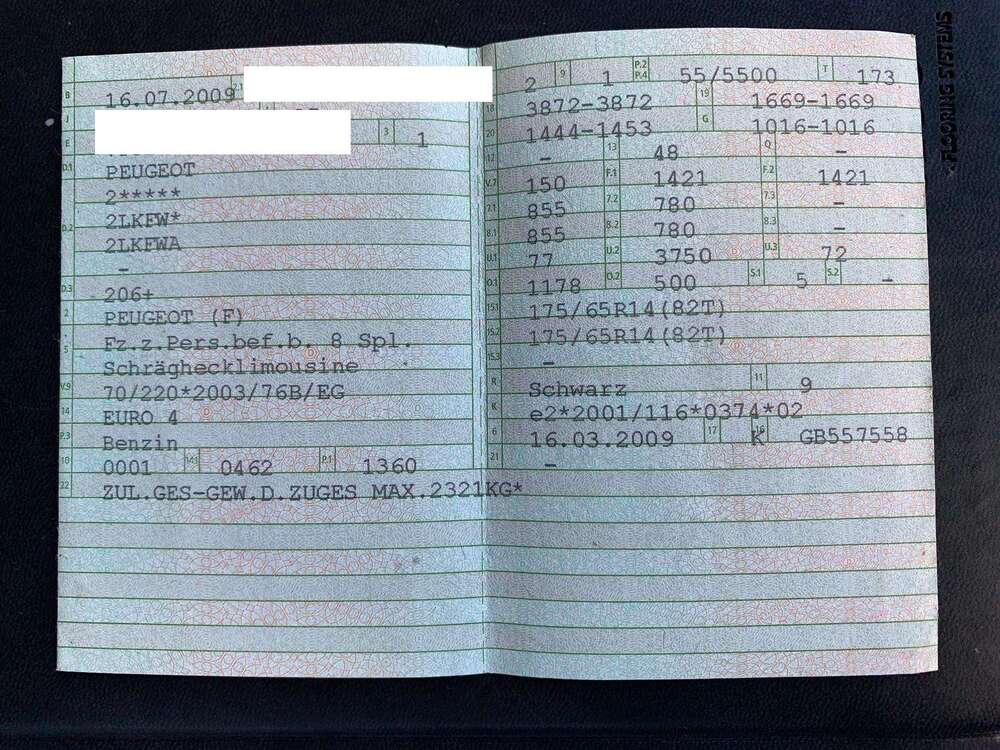 B 16.07.2009 2.1
J
E 3 1
D.1 PEUGEOT
2*****
D.2 2LKFW*
2LKFWA
-
D.3 206+
2 PEUGEOT (F)
5 Fz.z.Pers.bef.b. 8 Spl.
Schräghecklimousine
V.9 70/220*2003/76B/EG
14 EURO 4
P.3 Benzin
10 0001 14.1 0462 P.1 1360
22 ZUL.GES-GEW.D.ZUGES MAX.2321KG*
2 9 1 P.2 P.4 55/5500 T 173
18 3872-3872 19 1669-1669
20 1444-1453 G 1016-1016
12 - 13 48 Q -
V.7 150 F.1 1421 F.2 1421
7.1 855 7.2 780 7.3 -
8.1 855 8.2 780 8.3 -
U.1 77 U.2 3750 U.3 72
O.1 1178 O.2 500 S.1 5 S.2 -
15.1 175/65R14(82T)
15.2 175/65R14(82T)
15.3 -
R Schwarz 11 9
K e2*2001/116*0374*02
6 16.03.2009 17 K 16 GB557558
21 -
FLOORING SYSTEMS